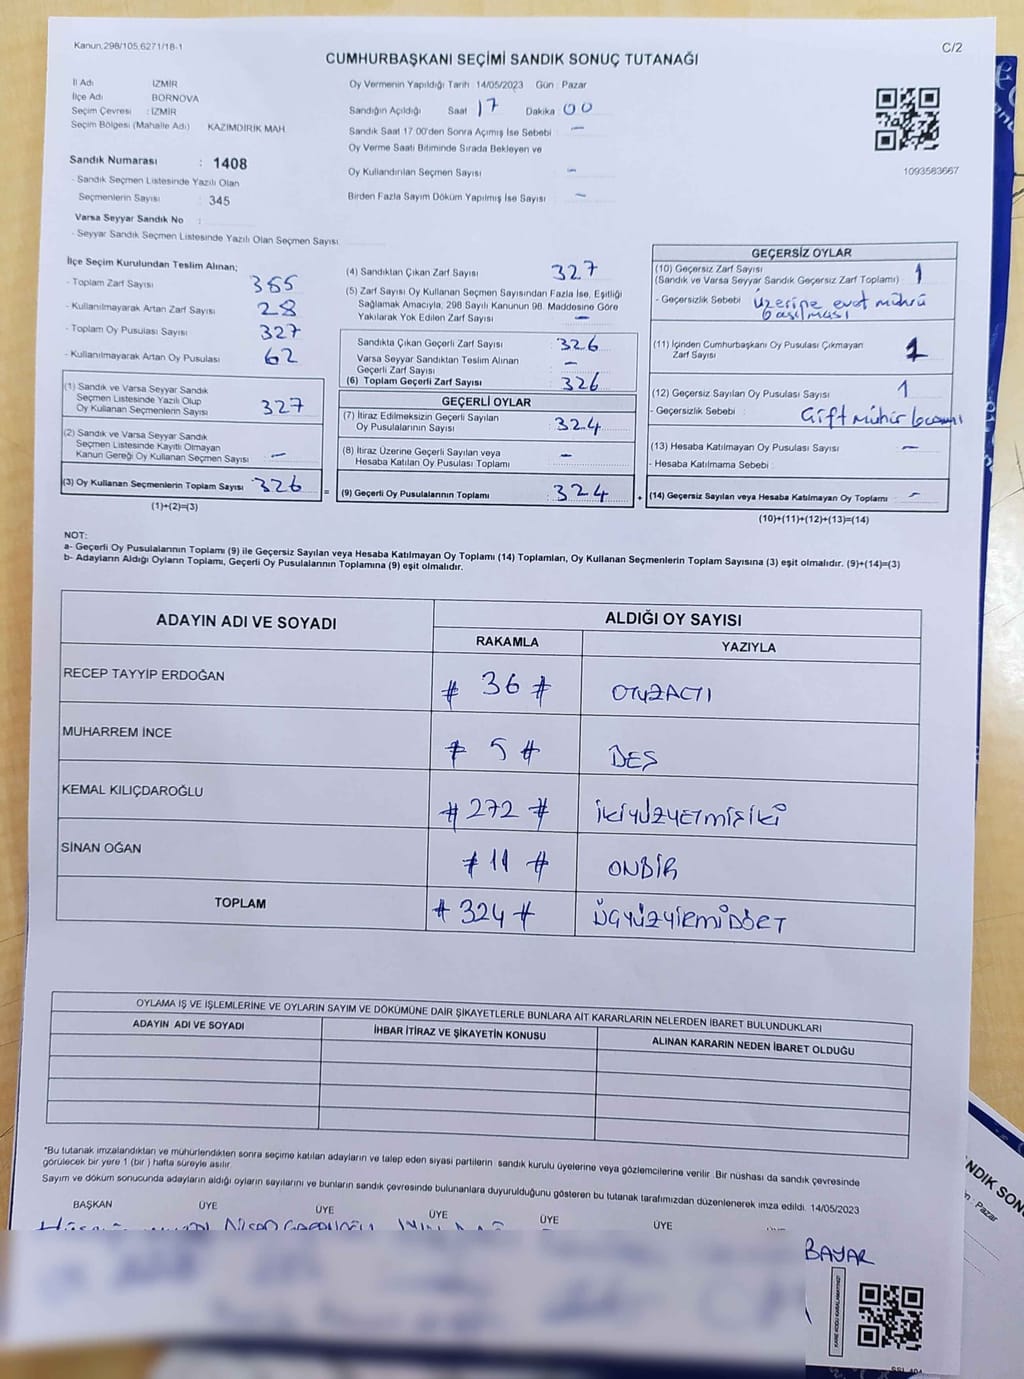 Kanun,298/105,6271/18-1
C/2
CUMHURBAŞKANI SEÇİMİ SANDIK SONUÇ TUTANAĞI
İl Adı İZMİR
İlçe Adı BORNOVA
Seçim Çevresi : İZMİR
Seçim Bölgesi (Mahalle Adı) KAZIMDİRİK MAH.
Sandık Numarası : 1408
- Sandık Seçmen Listesinde Yazılı Olan
Seçmenlerin Sayısı : 345
Varsa Seyyar Sandık No :
- Seyyar Sandık Seçmen Listesinde Yazılı Olan Seçmen Sayısı
Oy Vermenin Yapıldığı Tarih 14/05/2023 Gün : Pazar
Sandığın Açıldığı Saat 17 Dakika 00
Sandık Saat 17 00'den Sonra Açımış İse Sebebi –
Oy Verme Saati Bitiminde Sırada Bekleyen ve
Oy Kullandırılan Seçmen Sayısı –
Birden Fazla Sayım Döküm Yapılmış İse Sayısı –
1093583667
İlçe Seçim Kurulundan Teslim Alınan;
- Toplam Zarf Sayısı 355
- Kullanılmayarak Artan Zarf Sayısı 28
- Toplam Oy Pusulası Sayısı 327
- Kullanılmayarak Artan Oy Pusulası 62
(1) Sandık ve Varsa Seyyar Sandık
Seçmen Listesinde Yazılı Olup
Oy Kullanan Seçmenlerin Sayısı 327
(2) Sandık ve Varsa Seyyar Sandık
Seçmen Listesinde Kayıtlı Olmayan
Kanun Gereği Oy Kullanan Seçmen Sayısı –
(3) Oy Kullanan Seçmenlerin Toplam Sayısı 326
(1)+(2)=(3)
=
(4) Sandıktan Çıkan Zarf Sayısı 327
(5) Zarf Sayısı Oy Kullanan Seçmen Sayısından Fazla İse, Eşitliği
Sağlamak Amacıyla, 298 Sayılı Kanunun 98. Maddesine Göre
Yakılarak Yok Edilen Zarf Sayısı –
Sandıkta Çıkan Geçerli Zarf Sayısı 326
Varsa Seyyar Sandıktan Teslim Alınan
Geçerli Zarf Sayısı –
(6) Toplam Geçerli Zarf Sayısı 326
GEÇERLİ OYLAR
(7) İtiraz Edilmeksizin Geçerli Sayılan
Oy Pusulalarının Sayısı 324
(8) İtiraz Üzerine Geçerli Sayılan veya
Hesaba Katılan Oy Pusulası Toplamı –
(9) Geçerli Oy Pusulalarının Toplamı 324
+
GEÇERSİZ OYLAR
(10) Geçersiz Zarf Sayısı
(Sandık ve Varsa Seyyar Sandık Geçersiz Zarf Toplamı) 1
- Geçersizlik Sebebi Üzerine evet mührü
basılması
(11) İçinden Cumhurbaşkanı Oy Pusulası Çıkmayan
Zarf Sayısı 1
(12) Geçersiz Sayılan Oy Pusulası Sayısı 1
- Geçersizlik Sebebi : Çift Mühür
(13) Hesaba Katılmayan Oy Pusulası Sayısı –
- Hesaba Katılmama Sebebi
(14) Geçersiz Sayılan veya Hesaba Katılmayan Oy Toplamı –
(10)+(11)+(12)+(13)=(14)
NOT:
a- Geçerli Oy Pusulalarının Toplamı (9) ile Geçersiz Sayılan veya Hesaba Katılmayan Oy Toplamı (14) Toplamları, Oy Kullanan Seçmenlerin Toplam Sayısına (3) eşit olmalıdır. (9)+(14)=(3)
b- Adayların Aldığı Oyların Toplamı, Geçerli Oy Pusulalarının Toplamına (9) eşit olmalıdır.
ADAYIN ADI VE SOYADI ALDIĞI OY SAYISI
RAKAMLA YAZIYLA
RECEP TAYYİP ERDOĞAN # 36 # OTUZALTI
MUHARREM İNCE # 5 # BEŞ
KEMAL KILIÇDAROĞLU # 272 # İKİYÜZYETMİŞİKİ
SİNAN OĞAN # 11 # ONBİR
TOPLAM # 324 # ÜÇYÜZYİRMİDÖRT
OYLAMA İŞ VE İŞLEMLERİNE VE OYLARIN SAYIM VE DÖKÜMÜNE DAİR ŞİKAYETLERLE BUNLARA AİT KARARLARIN NELERDEN İBARET BULUNDUKLARI
ADAYIN ADI VE SOYADI İHBAR İTİRAZ VE ŞİKAYETİN KONUSU ALINAN KARARIN NEDEN İBARET OLDUĞU
*Bu tutanak imzalandıktan ve mühürlendikten sonra seçime katılan adayların ve talep eden siyasi partilerin sandık kurulu üyelerine veya gözlemcilerine verilir. Bir nüshası da sandık çevresinde
görülecek bir yere 1 (bir ) hafta süreyle asılır.
Sayım ve döküm sonucunda adayların aldığı oyların sayılarını ve bunların sandık çevresinde bulunanlara duyurulduğunu gösteren bu tutanak tarafımızdan düzenlenerek imza edildi. 14/05/2023
BAŞKAN ÜYE ÜYE ÜYE ÜYE ÜYE
BAYAR
NDIK SON
: Pazar